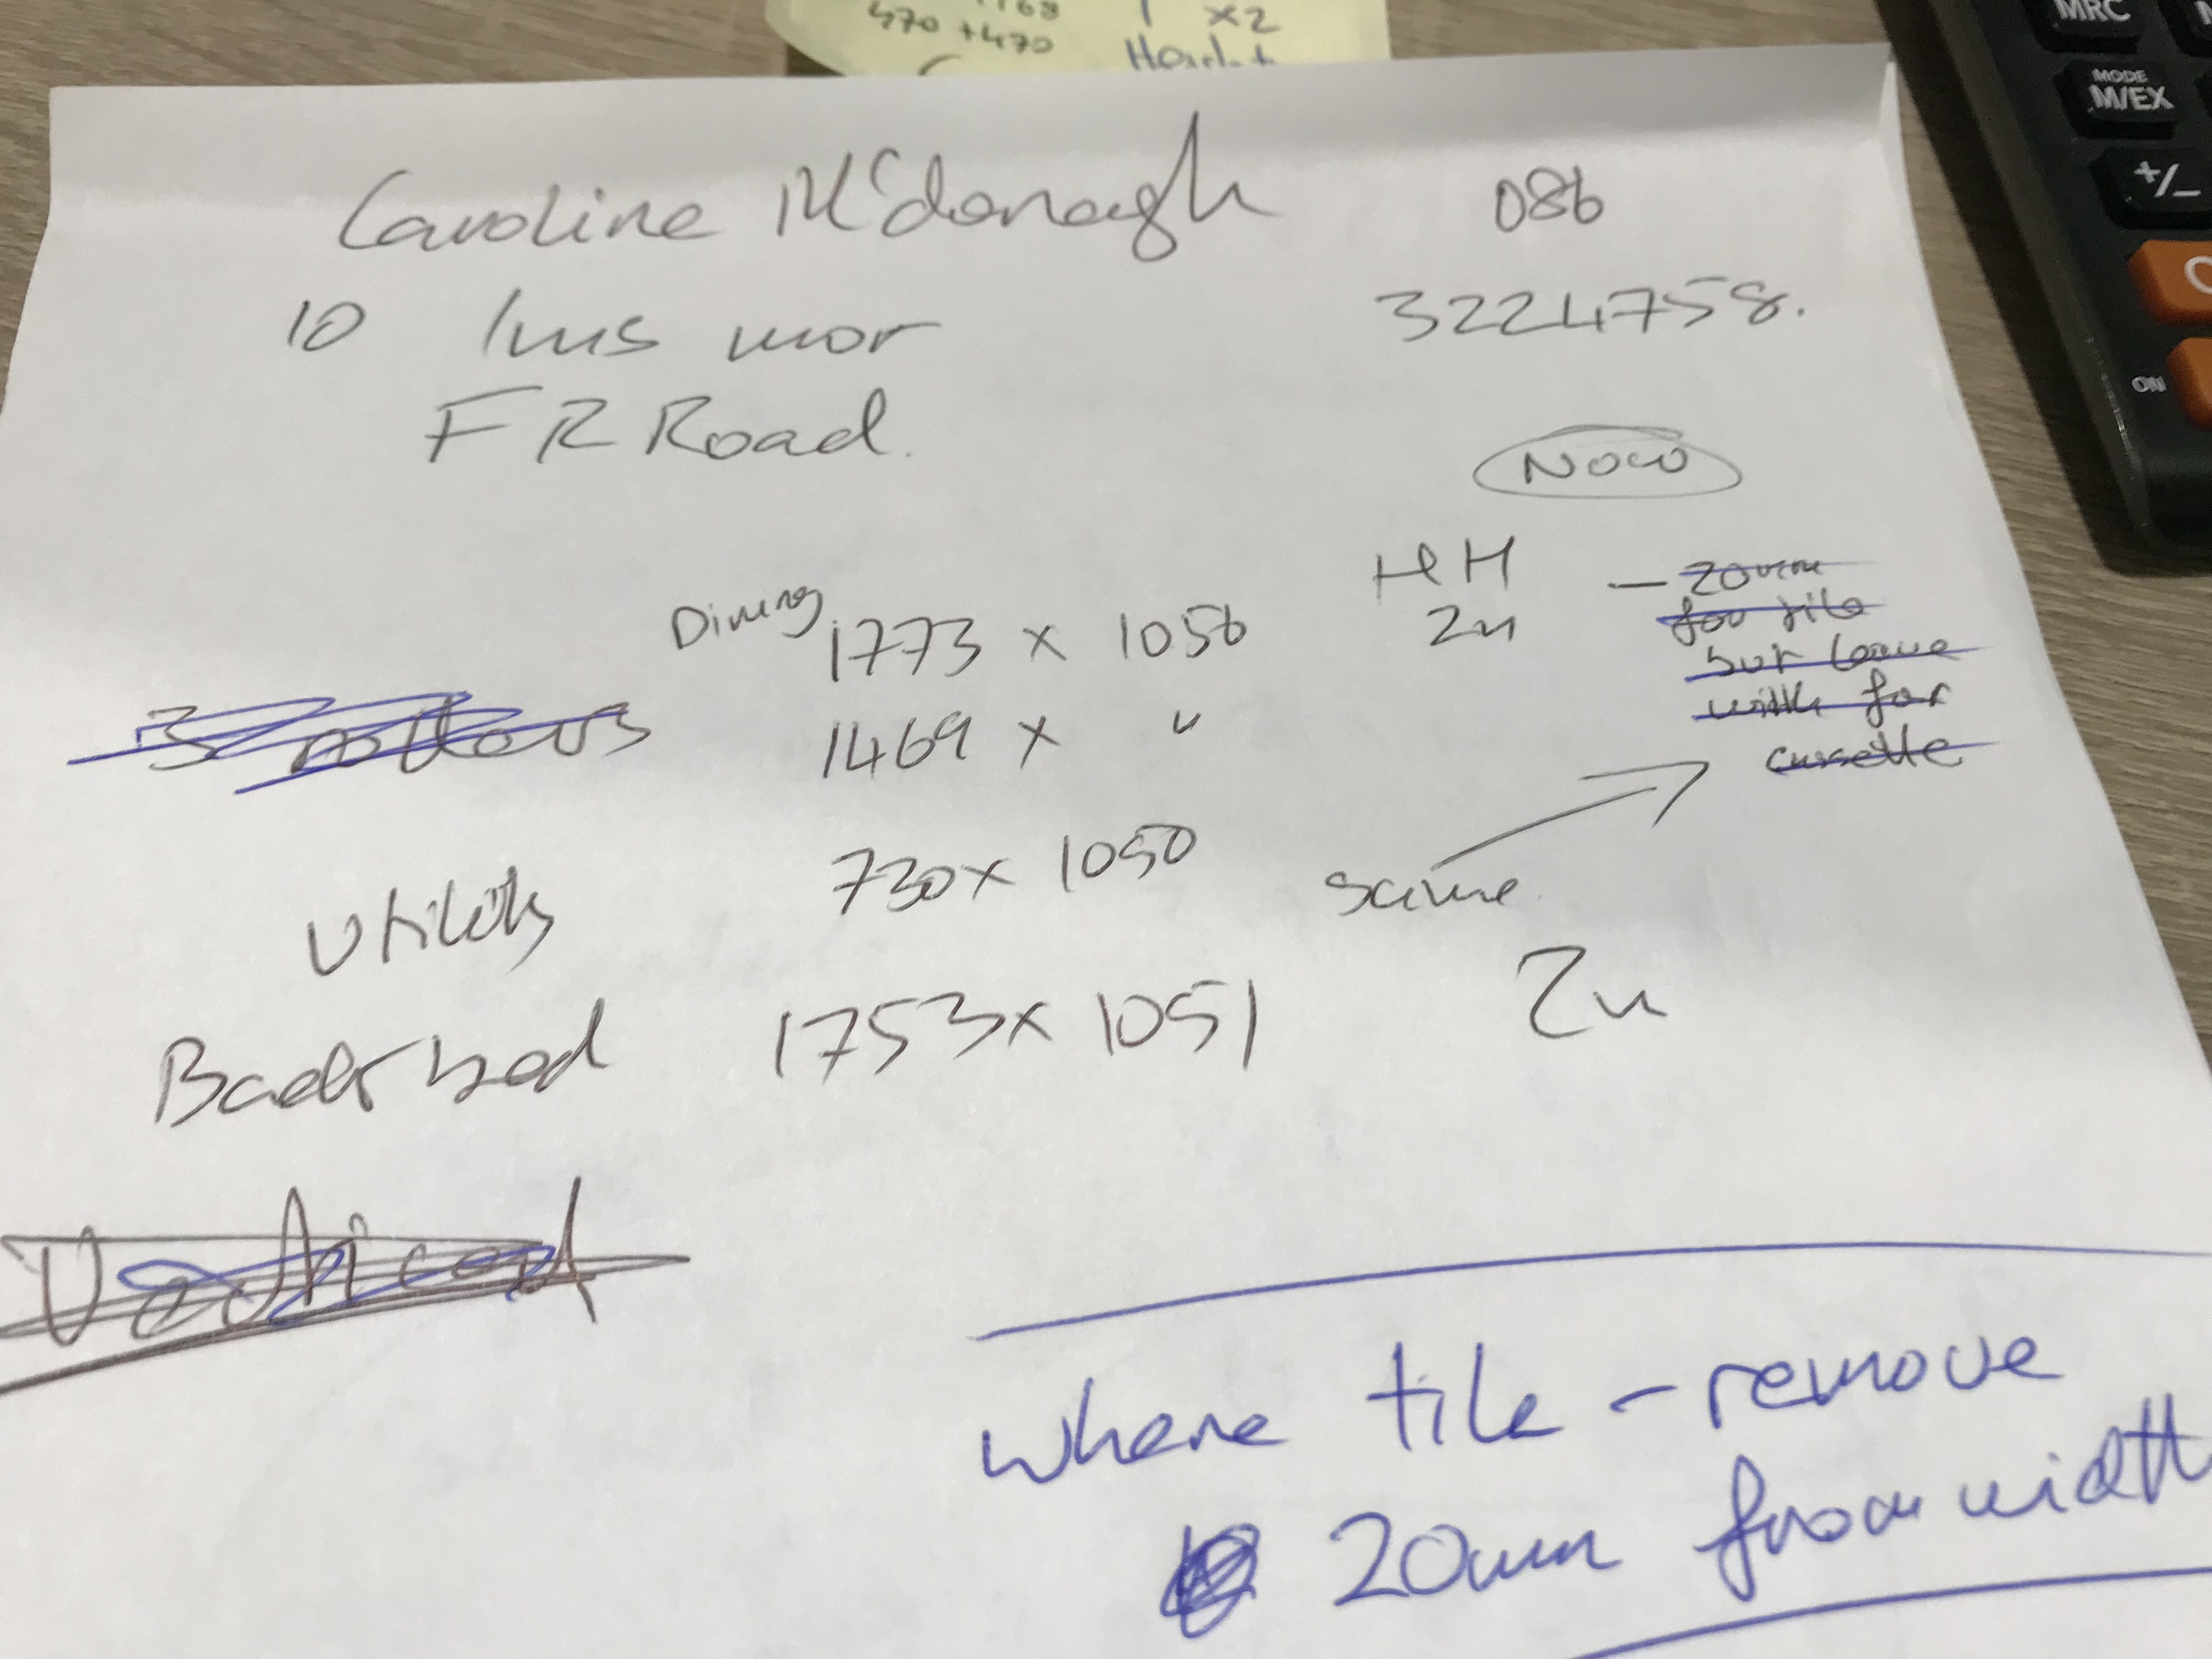 470 +470
x2
MRC
MODE
M/EX
+/-
ON
Caroline McDonagh 086
10 Inis mor 3224758.
FR Road.
Now
HH - 20mm
for tile
but leave
width for
cassette
Dining 1773 x 1056 2n
3 rollers 1469 x "
Utility 730 x 1050 same.
Back bed 1753 x 1051 2n
Vertical
where tile - remove
20mm from width